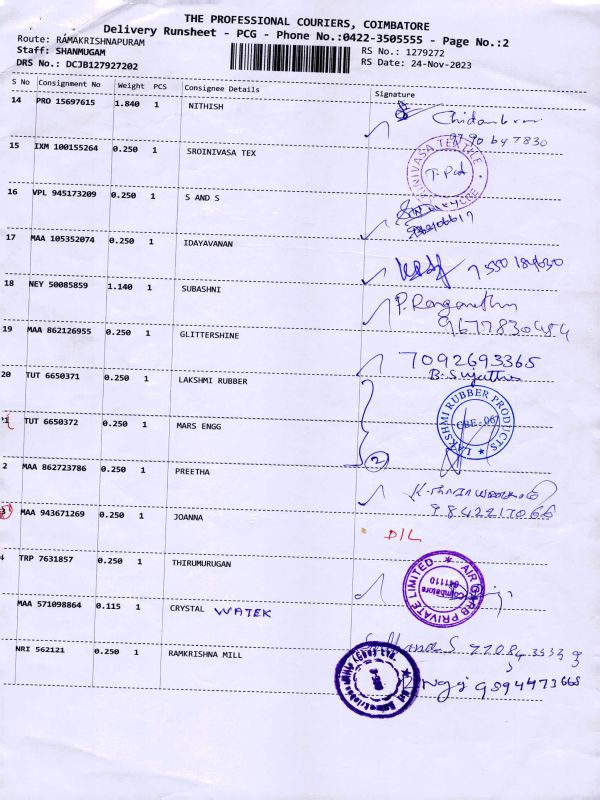 THE PROFESSIONAL COURIERS, COIMBATORE
Delivery Runsheet - PCG - Phone No.:0422-3505555 - Page No.:2
Route: RAMAKRISHNAPURAM
RS No.: 1279272
Staff: SHANMUGAM
RS Date: 24-Nov-2023
DRS No.: DCJB127927202
S No Consignment No Weight PCS Consignee Details Signature
14 PRO 15697615 1.840 1 NITHISH
15 IXM 100155264 0.250 1 SROINIVASA TEX
T. Pat
16 VPL 945173209 0.250 1 S AND S
17 MAA 105352074 0.250 1 IDAYAVANAN
18 NEY 50085859 1.140 1 SUBASHNI
P. Ranganathan
9677830484
19 MAA 862126955 0.250 1 GLITTERSHINE
7092693365
B. Sujatha
20 TUT 6650371 0.250 1 LAKSHMI RUBBER
LAKSHMI RUBBER PRODUCTS
CBE-06
TUT 6650372 0.250 1 MARS ENGG
2
2 MAA 862723786 0.250 1 PREETHA
9842217066
3 MAA 943671269 0.250 1 JOANNA
D/L
4 TRP 7631857 0.250 1 THIRUMURUGAN
AIR CARB PRIVATE LIMITED
Coimbatore
641110
MAA 571098864 0.115 1 CRYSTAL WATEK
NRI 562121 0.250 1 RAMKRISHNA MILL
9894473668